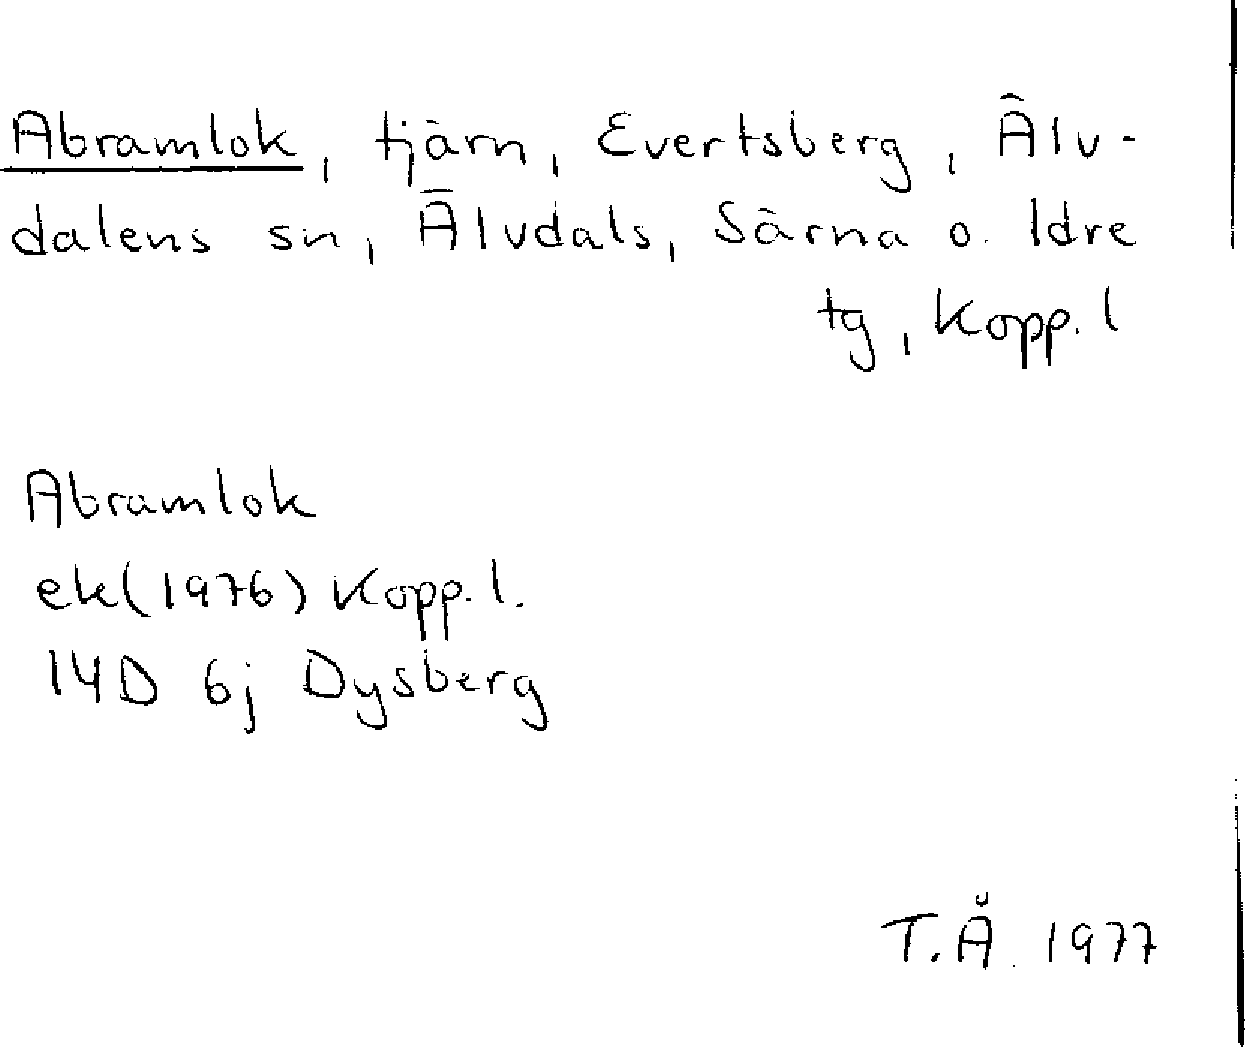 Abramlok, tjärn, Evertsberg, Älv-
dalens sn, Älvdals, Särna o. Idre
tg, Kopp. l
Abramlok
ek(1976) Kopp. l.
14D 6j Dysberg
T.Å. 1977